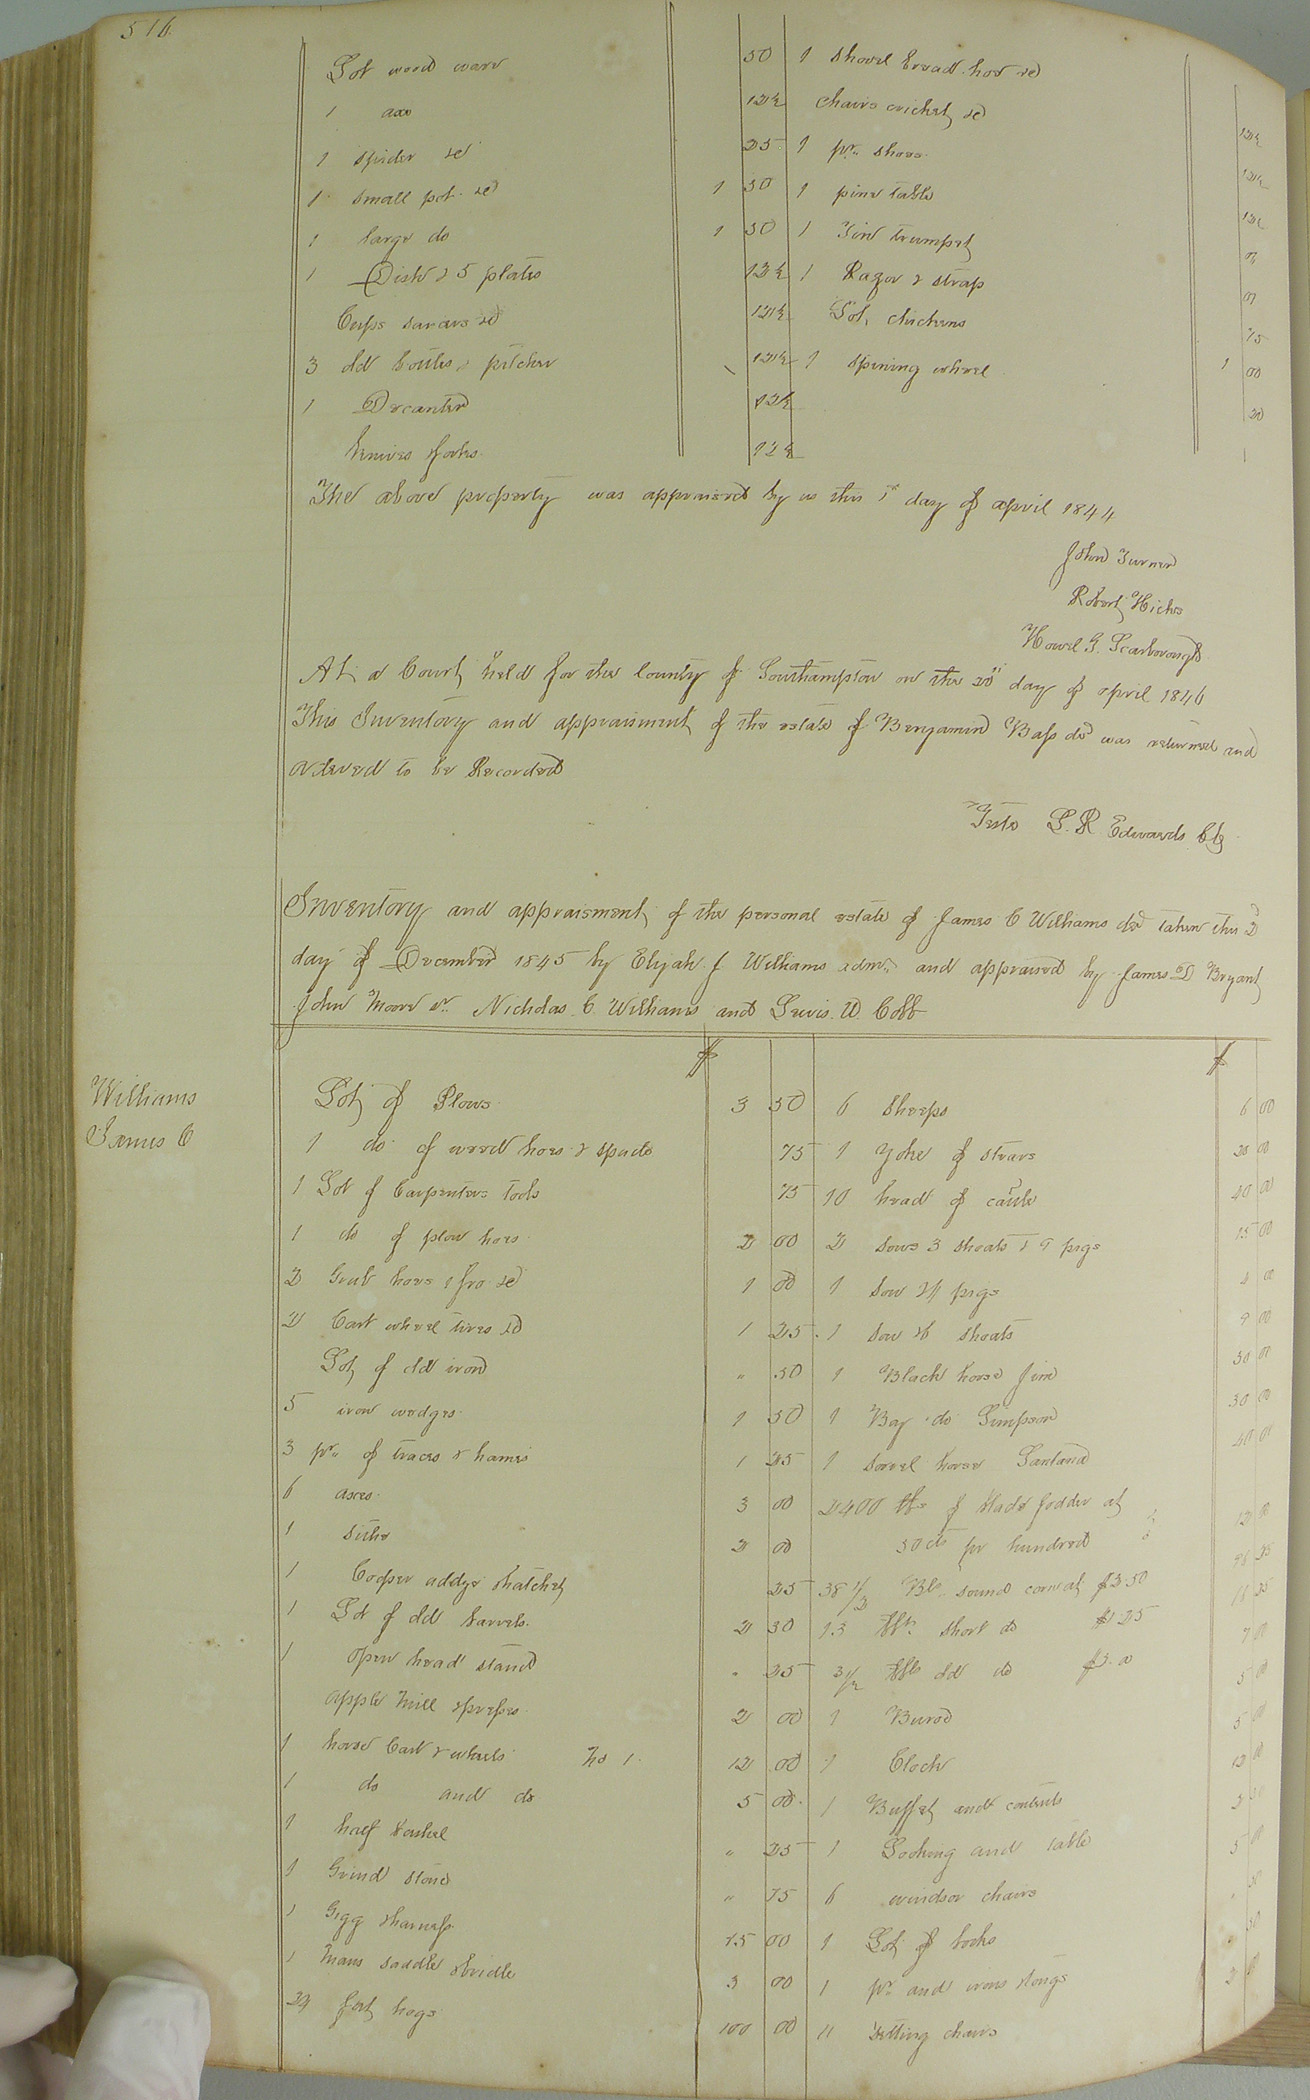 516
Lot wood ware 50 1 Shovel broad hoe &c 12½
1 axe 12½ Chairs cricket &c 12½
1 spider &c 25 1 pr. shoes 12½
1 small pot &c 1 50 1 pine table
1 large do 1 50 1 Tin trumpet
1 Dish & 5 plates 12½ 1 Razor & strap 75
Cups sarvers &c 12½ Lot chickens 1 00
3 old bottles & pitcher 12½ 1 spining wheel
1 Decanter 12½
knives & forks 12½
The above property was appraised by us this 1st day of april 1844
John Turner
Robert Hicks
Howel G. Scarborough
At a Court held for the County of Southampton on the 20th day of april 1846
This Inventory and appraisment of the estate of Benjamin Bass dcd was returned and
ordered to be Recorded
Teste L. R Edwards Clk
Inventory and appraisment of the personal estate of James C Williams dcd taken this 2d
day of December 1845 by Elijah J Williams admr. and appraised by James D Bryant
John Moore sr. Nicholas C. Williams and Lewis W. Cobb
$ $
Williams
James C
Lot of Plows 3 50 6 Sheeps 6 00
1 do of weed hoes & spade 75 1 Yoke of stears 20 00
1 Lot of Carpenters Tools 75 10 head of cattle 40 00
1 do of plow hoes 2 00 2 sows 3 shoats & 9 pigs 15 00
2 Grub hoes 1 fro &c 1 00 1 sow & 4 pigs 4 00
2 Cart wheel tires &c 1 25 1 sow & 6 shoats 9 00
Lot of old iron " 50 1 Black horse Jim 30 00
5 iron wedges 1 50 1 Bay do Simpson 30 00
3 pr. of traces & hames 1 25 1 sorrel horse Santana 40 00
6 axes 3 00 2400 lbs of blade fodder at
1 sithe 2 00 50 cts pr hundred 12 00
1 Cooper addze & hatchet 25 38 1/2 Bls. sound corn at $2.50 96 25
1 Lot of old barrels 2 50 13 Bls. short do $1.25 16 25
1 open head stand " 25 3 1/2 Bls old do 7 00
apple mill & presses 2 00 1 Buroe 5 00
1 horse Cart & wheels No 1. 12 00 1 Clock 5 00
1 do and do 5 00 1 Buffet and contents 12 00
1 half bushel " 25 1 Looking and table
1 Grind stone " 75 6 windsor chairs 5 00
1 Gigg & harness 15 00 1 Lot of books
1 Mans saddle & bridle 3 00 1 pr. and irons & tongs
24 fat hogs 100 00 11 Sitting chairs